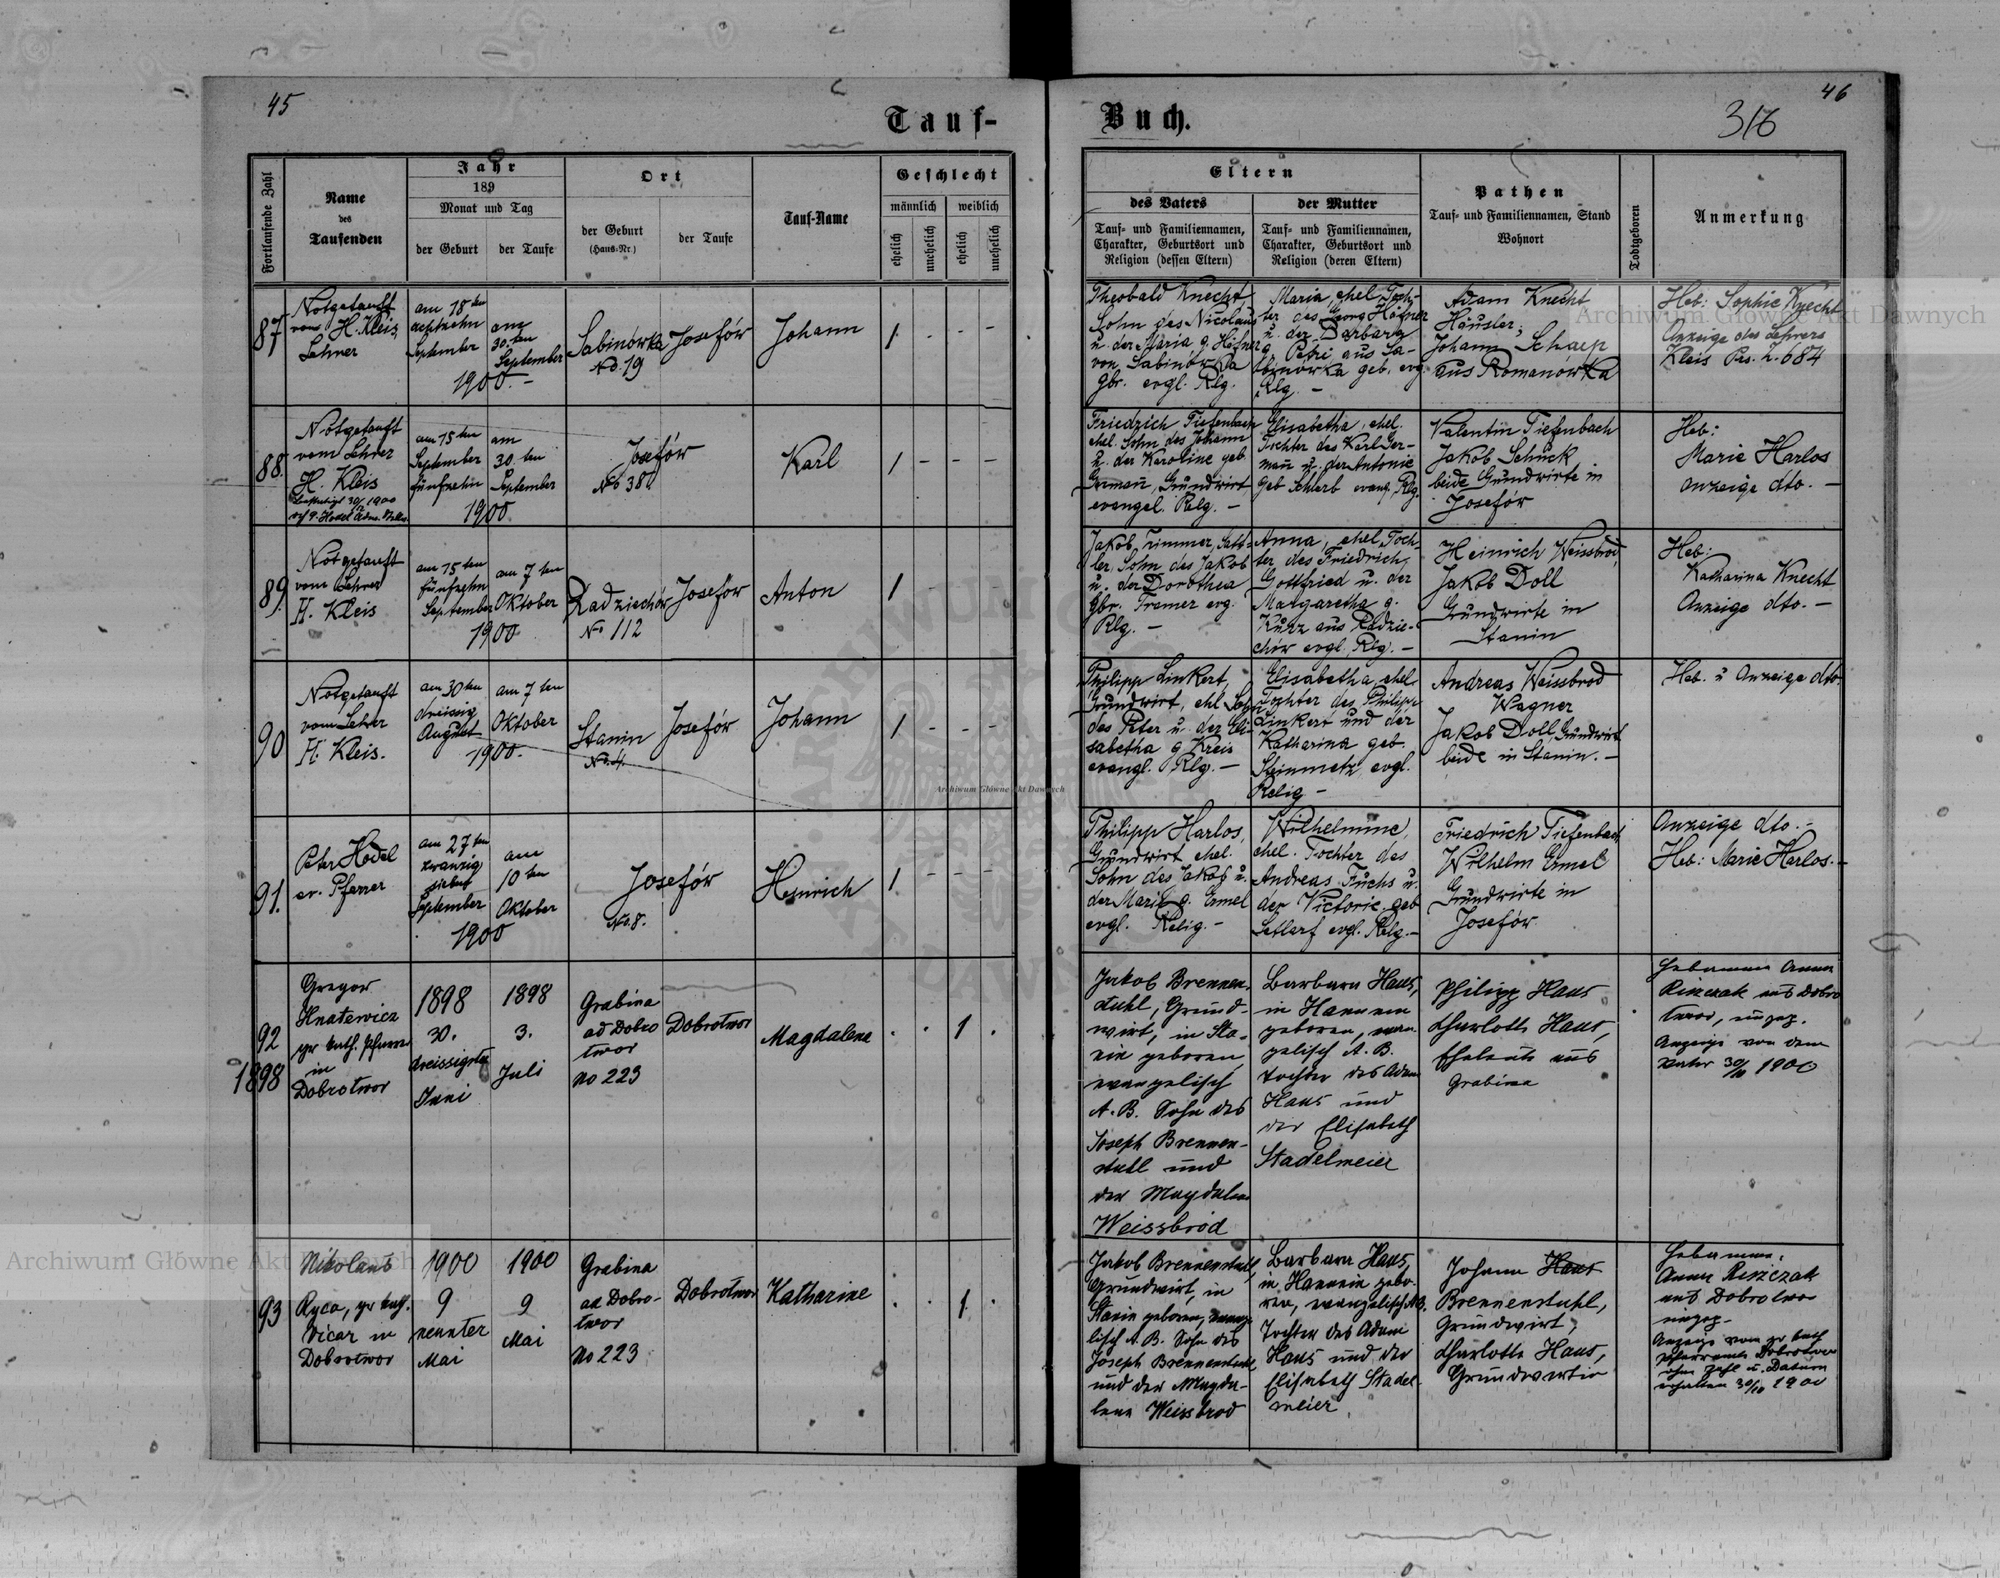 45
Tauf-
Fortlaufende Zahl
Name
des
Taufenden
Jahr
189
Monat und Tag
der Geburt
der Taufe
Ort
der Geburt
(Haus-Nr.)
der Taufe
Tauf-Name
Geschlecht
männlich
weiblich
ehelich
unehelich
ehelich
unehelich
87
Notgetauft
vom H. Kleis,
Lehrer
am 18 ten
achtzehn
September
am
30. ten
September
1900. -
Sabinówka
No. 19
Josefów
Johann
1 - - -
88.
Notgetauft
vom Lehrer
H. Kleis
am 15 ten
September
fünfzehn
am
30. ten
September
1900.
Josefów
No 38.
Karl
1 - - -
89.
Notgetauft
vom Lehrer
H. Kleis
am 15 ten
fünfzehn
September
am 7 ten
Oktober
1900
Radziechów
No 112
Josefów
Anton
1 - - -
90
Notgetauft
vom Lehrer
H. Kleis.
am 30 ten
dreissig
August
am 7 ten
Oktober
1900.
Stanin
No. 4.
Josefów
Johann
1 - - -
91.
Peter Hodel
ev. Pfarrer
am 27 ten
zwanzig
sieben
September
am
10 ten
Oktober
1900
Josefów
No. 8.
Heinrich
1 - - -
92
1898
Gregor
Hnatewicz
gr kath. Pfarrer
in
Dobrotwor
1898
30.
dreissigster
Juni
1898
3.
Juli
Grabina
ad Dobro
twor
No 223
Dobrotwor
Magdalena
. . 1 .
93
Nikolaus
Ryca, gr kath.
Vicar in
Dobrotwor
1900
9
neunter
Mai
1900
9
Mai
Grabina
ad Dobro-
twor
No 223
Dobrotwor
Katharine
. . 1 .
46
316
Buch.
Eltern
des Vaters
Tauf- und Familiennamen,
Charakter, Geburtsort und
Religion (dessen Eltern)
der Mutter
Tauf- und Familiennamen,
Charakter, Geburtsort und
Religion (deren Eltern)
Pathen
Tauf- und Familiennamen, Stand
Wohnort
Todtgeboren
Anmerkung
Theobald Knecht,
Sohn des Nicolaus
u. der Maria g. Häfner
von Sabinówka
gbr. evgl. Rlg.
Maria, ehel. Toch-
ter des Georg Häfner
u. der Barbara
g. Petri aus Sa-
binówka geb. evg.
Rlg. -
Adam Knecht
Häusler;
Johann Scharp
aus Romanówka
Heb: Sophie Knecht
Anzeige des Lehrers
Kleis Prs. Z. 684
Friedrich Tiefenbach
ehel. Sohn des Johann
u. der Karoline geb
German, Grundwirt
evangel. Rlg. -
Elisabetha, ehel.
Tochter des Karl Ger-
man u. der Antonie
geb Schlerb evang. Rlg.
Valentin Tiefenbach
Jakob Schück
beide Grundwirte in
Josefów
Heb:
Marie Harlos
Anzeige dto. -
Jakob Trimmer, Satt-
ler. Sohn des Jakob
u. der Dorothea
gbr. Tremer evg.
Rlg. -
Anna, ehel. Toch-
ter des Friedrich
Gottfried u. der
Margaretha g.
Kurz aus Radzie-
chów evgl. Rlg. -
Heinrich Weissbrod,
Jakob Doll
Grundwirte in
Stanin
Heb:
Katharina Knecht
Anzeige dto. -
Philipp Linkert,
Grundwirt, ehl. Sohn
des Peter u. der Eli-
sabetha g. Kreis
evangl. Rlg. -
Elisabetha, ehel.
Tochter des Philipp
Linkert und der
Katharina geb.
Steinmetz, evgl.
Relig -
Andreas Weissbrod
Wagner
Jakob Doll Grundwirt
beide in Stanin. -
Heb. u Anzeige dto.
Philipp Harlos,
Grundwirt, ehel.
Sohn des Jakob u.
der Marie g. Ermel
evgl. Relig. -
Wilhelmine,
ehel. Tochter des
Andreas Fuchs u.
der Victorie geb
evgl. Relg. -
Friedrich Tiefenbach
Wilhelm Ermel
Grundwirte in
Josefów
Anzeige dto. -
Heb: Marie Harlos. -
Jakob Brennen-
stuhl, Grund-
wirt, in Sta-
nin geboren,
evangelisch
A. B. Sohn des
Joseph Brennen-
stuhl und
der Magdalena
Weissbrod
Barbara Haus,
in Hanunin
geboren, evan-
gelisch A. B.
Tochter des Adam
Haus und
der Elisabeth
Stadelmeier
Philipp Haus
Charlotte Haus,
Eheleute aus
Grabina
Hebamme Anna
Riszczak aus Dobro
twor, ungep.
Anzeige von dem
Vater 30/11 1900
Jakob Brennenstuhl,
Grundwirt, in
Stanin geboren, evange-
lisch A. B. Sohn des
Joseph Brennenstuhl
und der Magda-
lena Weissbrod
Barbara Haus,
in Hanunin gebo-
ren, evangelisch A. B.
Tochter des Adam
Haus und der
Elisabeth Stadel-
meier.
Johann Haus
Brennenstuhl,
Grundwirt,
Charlotte Haus,
Grundwirtin
Hebamme:
Anna Riszczak
aus Dobrotwor
ungep.
Anzeige vom gr kath
Pfarramte Dobrotwor
ohne Zahl u. Datum
erhalten 30/10 1900
Archiwum Główne Akt Dawnych
Archiwum Główne Akt Dawnych
Archiwum Główne Akt Dawnych